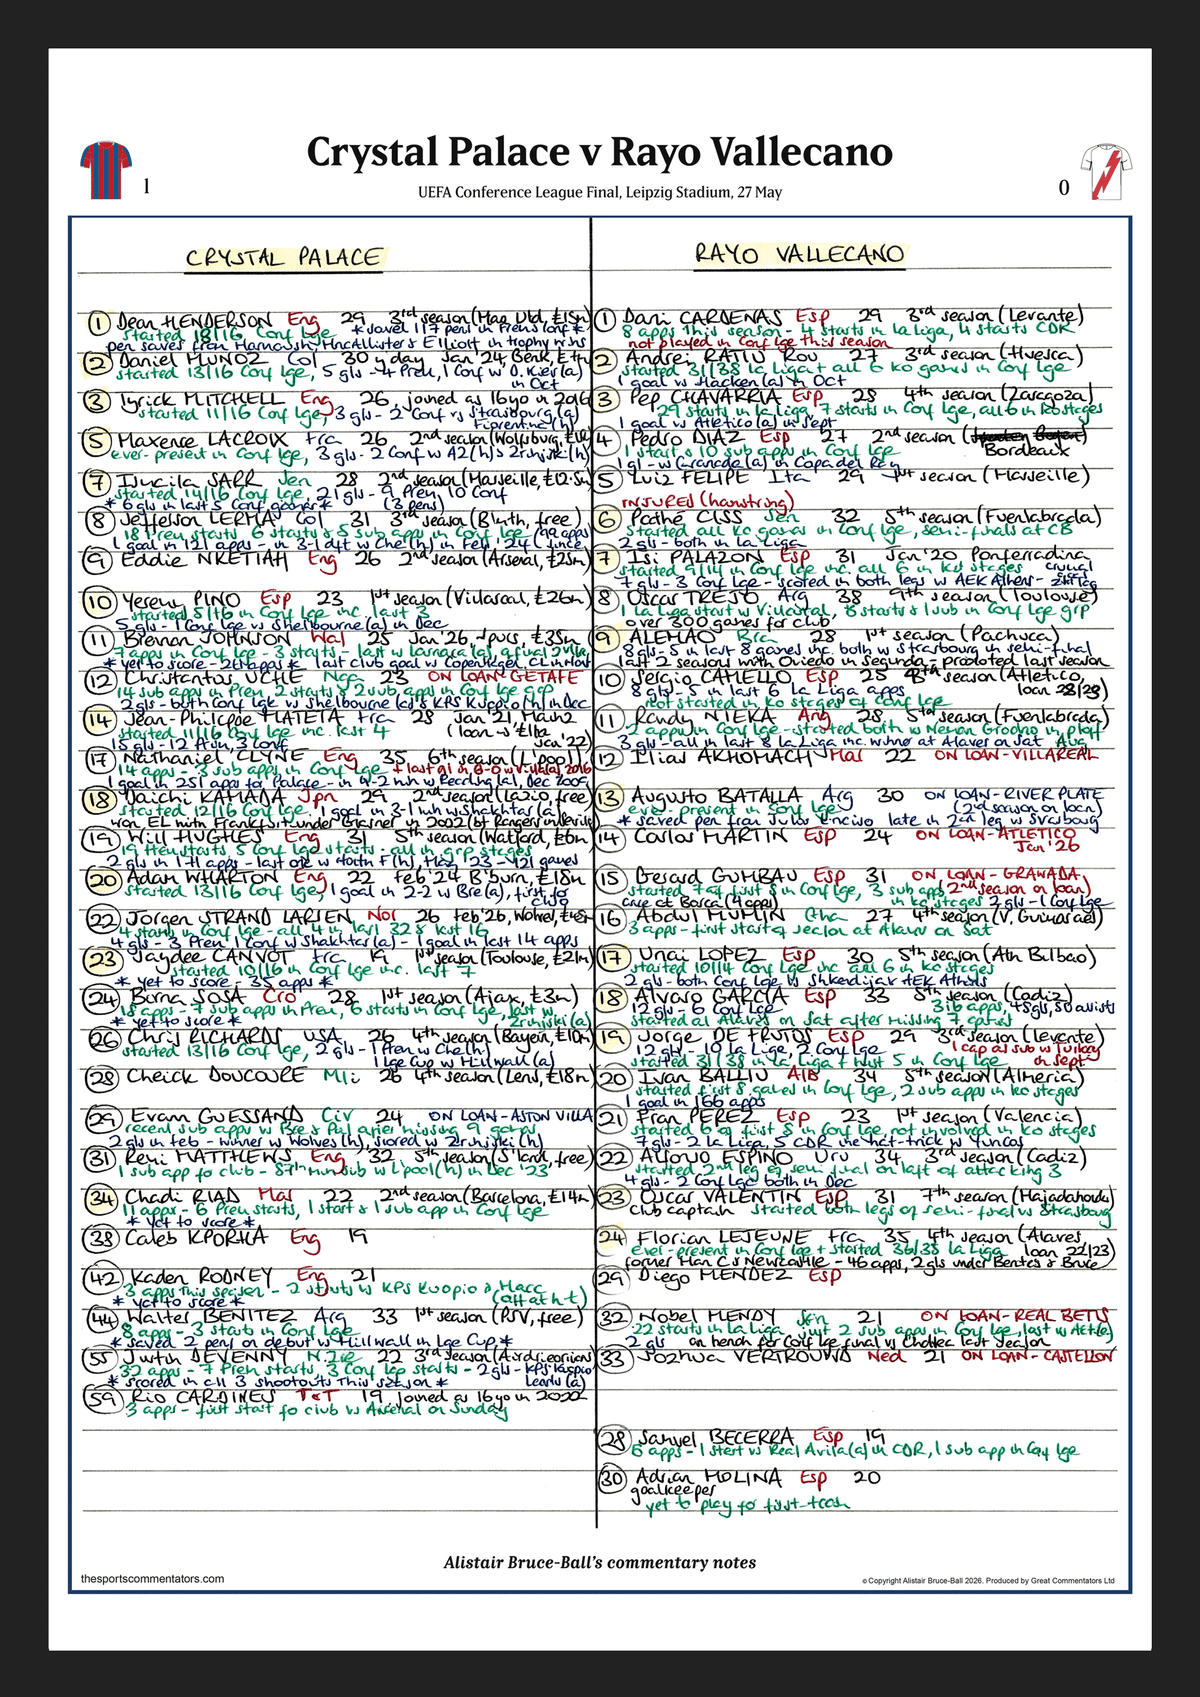 Crystal Palace v Rayo Vallecano
1
0
UEFA Conference League Final, Leipzig Stadium, 27 May
CRYSTAL PALACE
1 Dean HENDERSON Eng 29 3rd season (Man Utd, £15m)
started 13/16 Conf Lge
pen saves from
2 Daniel MUNOZ Col 30 Jan '24 Genk,
started 13/16 Conf Lge, 5 gls - 4 Prem, 1 Conf w D. Kiev (a)
in Oct
3 Tyrick MITCHELL Eng 26 joined as 16yo in 2016
started 11/16 Conf Lge, 3 gls - 2 Conf vs Strasbourg (a)
Fiorentina (h)
5 Maxence LACROIX Fra 26 2nd season (Wolfsburg,
ever-present in Conf Lge, 3 gls - 2 Conf w AZ (h) & Zrinjski (h)
7 Ismaila SARR Sen 28 2nd season (Marseille, £12.5m)
started 14/16 Conf Lge, 21 gls - 9 Prem, 10 Conf
* 6 gls in last 5 Conf games * (3 pens)
8 Jefferson LERMA Col 31 3rd season (B'mth, free)
18 Prem starts 6 starts & 5 sub apps in Conf Lge
1 goal in 121 apps - in 3-1 dft w Che (h) in Feb '24
9 Eddie NKETIAH Eng 26 2nd season (Arsenal, £25m)
10 Yeremy PINO Esp 23 1st season (Villareal, £26m)
started 5/16 in Conf Lge inc. last 3
5 gls - 1 Conf Lge vs Shelbourne (a) in Dec
11 Brennan JOHNSON Wal 25 Jan '26, Spurs, £35m
7 apps in Conf Lge - 3 starts - last w Larnaca (a),
* yet to score - 26 apps * last club goal w Copenhagen CL in Nov
12 Christantus UCHE Nga 23 ON LOAN - GETAFE
14 sub apps in Prem, 2 starts & 2 sub apps in Conf Lge grp
2 gls - both Conf Lge w Shelbourne (a) & KPS Kuopio (h) in Dec
14 Jean-Philippe MATETA Fra 28 Jan '21, Mainz
started 11/16 Conf Lge inc. last 4 (loan → £11m
15 gls - 12 Prem, 3 Conf Jan '22)
17 Nathaniel CLYNE Eng 35 6th season (L'pool)
14 apps - 3 sub apps in Conf Lge
1 goal in 251 apps for Palace - in 4-2 win w Reading (a), Dec 2009
18 Daichi KAMADA Jpn 29 2nd season (Lazio, free)
started 12/16 Conf Lge, 1 goal in 3-1 win w Shakhtar (a)
won EL with Frankfurt under Glasner in 2022 (bt Rangers in Seville)
19 Will HUGHES Eng 31 5th season (Watford, £6m)
19 Prem starts 5 Conf Lge starts - all in grp stages
20 Adam WHARTON Eng 22 Feb '24 B'burn, £18m
started 13/16 Conf Lge, 1 goal in 2-2 w Bre (a), first for
club
22 Jorgen STRAND LARSEN Nor 26 Feb '26, Wolves,
4 starts in Conf Lge - all 4 in last 32 & last 16
4 gls - 3 Prem 1 Conf w Shakhtar (a) - 1 goal in last 14 apps
23 Jaydee CANVOT Fra 19 1st season (Toulouse, £21m)
started 10/16 in Conf Lge inc. last 7
* yet to score - 35 apps *
24 Borna SOSA Cro 28 1st season (Ajax, £3m)
18 apps - 7 sub apps in Prem, 6 starts in Conf Lge, last w
* yet to score * Zrinjski (a)
26 Chris RICHARDS USA 26 4th season (Bayern, £10m)
started 13/16 in Conf Lge, 2 gls - 1 Prem w Che (h)
1 Lge Cup w Millwall (a)
28 Cheick DOUCOURE Mli 26 4th season (Lens, £18m)
29 Evann GUESSAND Civ 24 ON LOAN - ASTON VILLA
recent sub apps w Bre & Pal after missing 9 games
2 gls in Feb - winner w Wolves (h), scored w Zrinjski (h)
31 Remi MATTHEWS Eng 32 5th season (S'land, free)
1 sub app for club - 87th min sub w L'pool (h) in Dec '23
34 Chadi RIAD Mar 22 2nd season (Barcelona, £14m)
11 apps - 6 Prem starts, 1 start & 1 sub app in Conf Lge
* yet to score *
38 Caleb KPORHA Eng 19
42 Kaden RODNEY Eng 21
3 apps this season - 2 starts w KPS Kuopio & Macc
* yet to score * (off at h-t)
44 Walter BENITEZ Arg 33 1st season (PSV, free)
8 apps - 3 starts in Conf Lge
* saved 2 pens on debut w Millwall in Lge Cup *
55 Justin DEVENNY N Ire 22 3rd season (Airdrieonians)
32 apps - 7 Prem starts, 3 Conf Lge starts - 2 gls - KPS Kuopio
* scored in all 3 shootouts this season * Leeds (a)
59 Rio CARDINES T&T 19 Joined as 16yo in 2022
3 apps - first start for club vs Arsenal on Sunday
RAYO VALLECANO
1 Dani CARDENAS Esp 29 3rd season (Levante)
8 apps this season - 4 starts in La Liga, 4 starts CDR
not played in Conf Lge this season
2 Andrei RATIU Rou 27 3rd season (Huesca)
started 31/38 La Liga + all 6 ko games in Conf Lge
1 goal vs Hacken (a) in Oct
3 Pep CHAVARRIA Esp 28 4th season (Zaragoza)
29 starts in La Liga, 7 starts in Conf Lge, all 6 in ko stages
1 goal vs Atletico (a) in Sept
4 Pedro DIAZ Esp 27 2nd season
Bordeaux
1 start & 10 sub apps in Conf Lge
1 gl - w Granada (a) in Copa del Rey
5 Luiz FELIPE Ita 29 1st season (Marseille)
INJURED (hamstring)
6 Pathe CISS Sen 32 5th season (Fuenlabrada)
started all ko games in Conf Lge, semi-finals at CB
2 gls - both in La Liga
7 Isi PALAZON Esp 31 Jan '20 Ponferradina
started 9/14 in Conf Lge inc. all 6 in ko stages crucial
7 gls - 3 Conf Lge - scored in both legs w AEK Athens -
8 Oscar TREJO Arg 38 9th season (Toulouse)
1 La Liga start w Villareal, 3 starts & 1 sub in Conf Lge grp
over 300 games for club
9 ALEMAO Bra 28 1st season (Pachuca)
8 gls - 5 in last 8 games inc. both w Strasbourg in semi-final
last 2 seasons with Oviedo in Segunda - promoted last season
10 Sergio CAMELLO Esp 25 season (Atletico,
8 gls - 5 in last 6 La Liga apps loan 22/23)
not started in ko stages of Conf Lge
11 Randy NTEKA Ang 28 5th season (Fuenlabrada)
2 apps in Conf Lge - started both w Neman Grodno in playoff
3 gls - all in last 8 La Liga inc. winner at Alaves on Sat Aug
12 Ilias AKHOMACH Mar 22 ON LOAN - VILLAREAL
13 Augusto BATALLA Arg 30 ON LOAN - RIVER PLATE
ever-present in Conf Lge (2nd season on loan)
* saved pen from Julio Enciso late in 2nd leg w Strasbourg
14 Carlos MARTIN Esp 24 ON LOAN - ATLETICO
Jan '26
15 Gerard GUMBAU Esp 31 ON LOAN - GRANADA
started 7 of first 8 in Conf Lge, 3 sub apps (2nd season on loan)
came at Barca (4 apps) in ko stages 2 gls - 1 Conf Lge
16 Abdul MUMIN Gha 27 4th season (V. Guimaraes)
3 apps - first start of season at Alaves on Sat
17 Unai LOPEZ Esp 30 5th season (Ath Bilbao)
started 10/14 Conf Lge inc all 6 in ko stages
2 gls - both Conf Lge vs Shkendija & AEK Athens
18 Alvaro GARCIA Esp 33 8th season (Cadiz)
12 gls - 6 Conf Lge 316 apps, 48 gls, 50 assists
started at Alaves on Sat after missing 7 games
19 Jorge DE FRUTOS Esp 29 3rd season (Levante)
12 gls - 10 La Liga, 2 Conf Lge 1 cap as sub w Turkey
started 31/38 in La Liga + last 5 in Conf Lge in Sept
20 Ivan BALLIU Alb 34 5th season (Almeria)
started first 8 games in Conf Lge, 2 sub apps in ko stages
1 goal in 166 apps
21 Fran PEREZ Esp 23 1st season (Valencia)
started 6 of first 8 in Conf Lge, not involved in ko stages
7 gls - 2 La Liga, 5 CDR inc hat-trick w Yuncos
22 Alfonso ESPINO Uru 34 3rd season (Cadiz)
started 2nd leg of semi final on left of attacking 3
4 gls - 2 Conf Lge both in Dec
23 Oscar VALENTIN Esp 31 7th season (Majadahonda)
club captain started both legs of semi-final vs Strasbourg
24 Florian LEJEUNE Fra 35 4th season (Alaves,
ever-present in Conf Lge + started 36/38 La Liga loan 22/23)
former Man C & Newcastle - 46 apps, 2 gls under Benitez & Bruce
29 Diego MENDEZ Esp
32 Nobel MENDY Sen 21 ON LOAN - REAL BETIS
22 starts in La Liga, just 2 sub apps in Conf Lge, last w
2 gls on bench for Conf Lge final vs Chelsea last season
33 Jozhua VERTROUWD Ned 21 ON LOAN - CASTELLON
28 Samuel BECERRA Esp 19
6 apps - 1 start vs Real Avila (a) in CDR, 1 sub app in Conf Lge
30 Adrian MOLINA Esp 20
goalkeeper
yet to play for first-team
Alistair Bruce-Ball's commentary notes
thesportscommentators.com
© Copyright Alistair Bruce-Ball 2026. Produced by Great Commentators Ltd